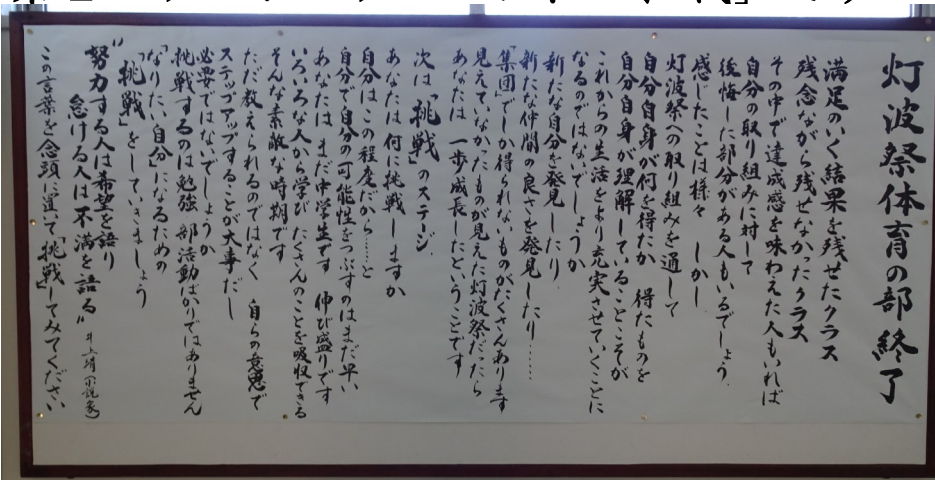 灯波祭体育の部終了
満足のいく結果を残せたクラス
残念ながら残せなかったクラス
その中で達成感を味わえた人もいれば
自分の取り組みに対して
後悔した部分がある人もいるでしょう
感じたことは様々 しかし
灯波祭への取り組みを通して
自分自身が何を得たか 得たものを
自分自身が理解していることこそが
これからの生活をより充実させていくことに
なるのではないでしょうか
新たな自分を発見したり、
新たな仲間の良さを発見したり……
「集団」でしか得られないものがたくさんあります
見えていなかったものが見えた灯波祭だったら
あなたは 一歩成長したということです
次は「挑戦」のステージ
あなたは何に挑戦しますか
自分は この程度だから……と
自分で自分の可能性をつぶすのはまだ早い
あなたは まだ中学生です 伸び盛りです
いろいろな人から学び たくさんのことを吸収できる
そんな素敵な時期です
ただ教えられるのではなく 自らの意思で
ステップアップすることが大事だし
必要ではないでしょうか
挑戦するのは勉強 部活動ばかりではありません
「なりたい自分」になるための
「挑戦」をしていきましょう
"努力する人は希望を語り
怠ける人は不満を語る" 井上靖(小説家)
この言葉を念頭に置いて「挑戦」してみてください